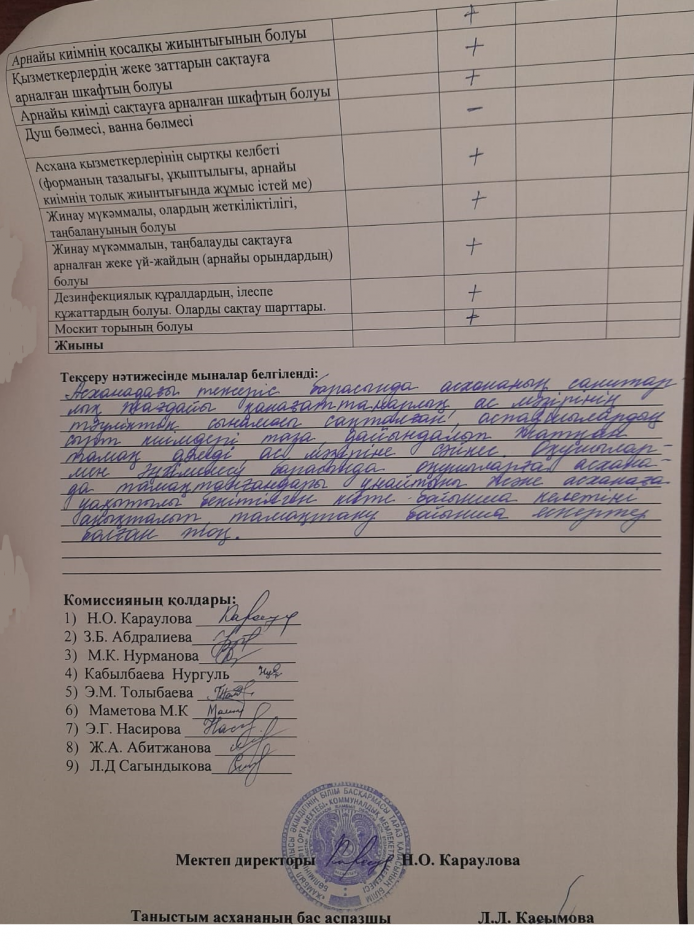 +
Арнайы киімнің қосалқы жиынтығының болуы +
Қызметкерлердің жеке заттарын сақтауға
арналған шкафтың болуы +
Арнайы киімді сақтауға арналған шкафтың болуы −
Душ бөлмесі, ванна бөлмесі
Асхана қызметкерлерінің сыртқы келбеті +
(форманың тазалығы, ұқыптылығы, арнайы
киімнің толық жиынтығында жұмыс істей ме)
Жинау мүкәммалы, олардың жеткіліктілігі, +
таңбалануының болуы
Жинау мүкәммалын, таңбалауды сақтауға +
арналған жеке үй-жайдың (арнайы орындардың)
болуы
Дезинфекциялық құралдардың, ілеспе +
құжаттардың болуы. Оларды сақтау шарттары.
Москит торының болуы +
Жиыны
Тексеру нәтижесінде мыналар белгіленді:
Асханадағы тексеріс барысында асхананың санитар
лық жағдайы қанағаттанарлық, ас мәзірінің
тәуліктік сынамасы сақталған, аспазшылардың
сыртқы киімдері таза, дайындалып жатқан
тамақ дәмді, ас мәзіріне сәйкес. Оқушылар-
мен әңгімелесу барысында оқушыларға асхана-
да тамақтанғандары ұнайтыны және асханаға
уақытылы бекітілген кесте бойынша келетіні
анықталып, тамақтану бойынша ескерту
болған жоқ.
Комиссияның қолдары:
1) Н.О. Караулова
2) З.Б. Абдралиева
3) М.К. Нурманова
4) Кабылбаева Нургуль
5) Э.М. Толыбаева
6) Маметова М.К
7) Э.Г. Насирова
8) Ж.А. Абитжанова
9) Л.Д Сагындыкова
Мектеп директоры Н.О. Караулова
Таныстым асхананың бас аспазшы Л.Л. Касымова